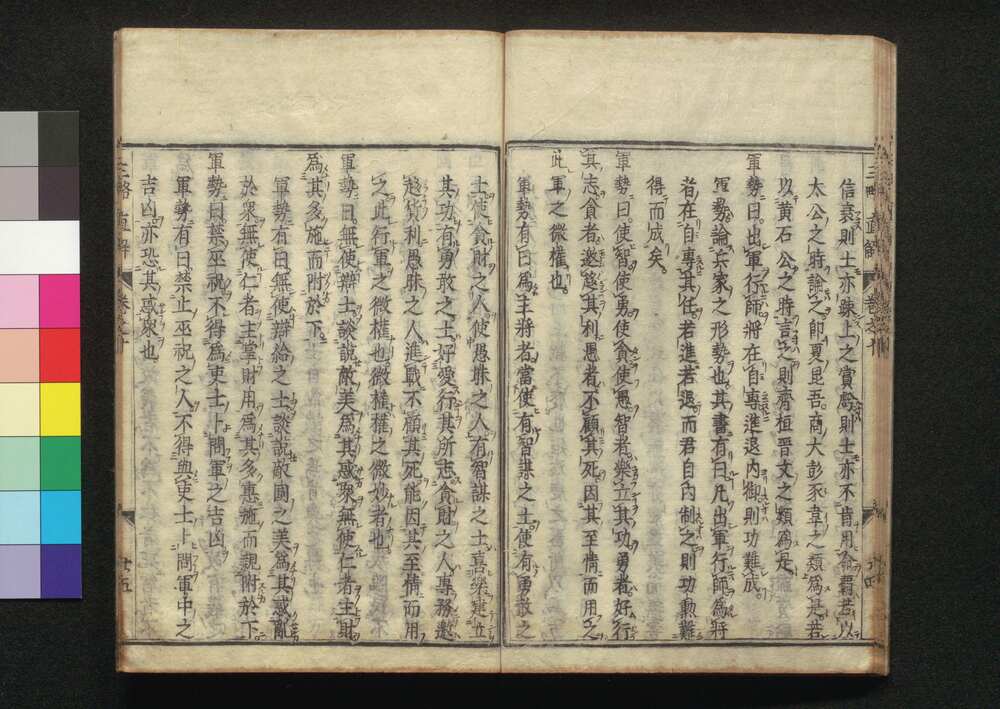 信衰則士亦疎上之賞虧則士亦不肯用命覇者以
太公之時論之即夏昆吾商大彭豕韋之類爲是若
以黄石公之時言之則齊桓晋文之類爲是
軍勢曰出軍行師將在自專進退内御則功難成
軍勢論兵家之形勢也其書有曰凡出軍行師爲將
者在自專其任若進若退而君自内制之則功勳難
得而成矣
軍勢曰使智使勇使貪使愚智者樂立其功勇者好行
其志貪者邀趍其利愚者不顧其死因其至情而用之
此軍之微權也
軍勢有曰爲主將者當使有智謀之士使有勇敢之
士使貪財之人使愚眛之人有智謀之士喜樂建立
其功有勇敢之士好愛行其所志貪財之人專務邀
趍貨利愚眛之人進戰不顧其死能因其至情而用
之此行軍之微權也微權權之微妙者也
軍勢曰無使辯士談說敵美爲其惑衆無使仁者主財
爲其多施而附於下
軍勢有曰無使辯給之士談說敵國之美爲其惑亂
於衆無使仁者主掌財用爲其多惠施而親附於下
軍勢曰禁巫祝不得爲吏士卜問軍之吉凶
軍勢有曰禁止巫祝之人不得與吏士卜問軍中之
吉凶亦恐其惑衆也
三略直解
卷之十
廿五